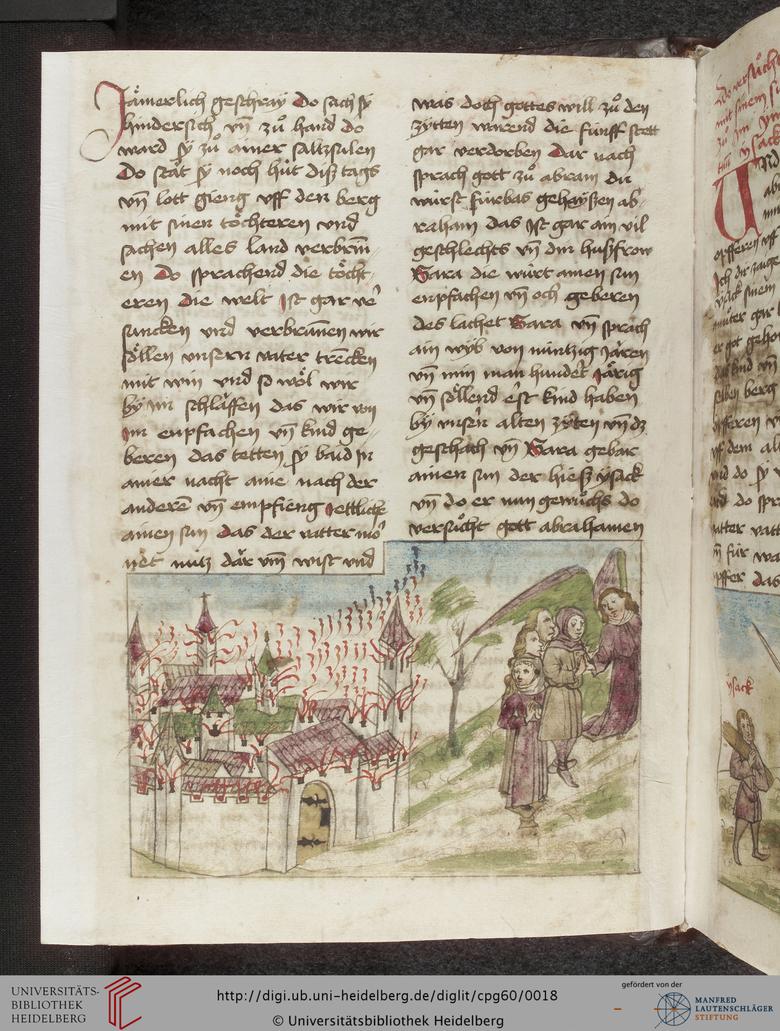 Jämerlich geschray Do sach sy
hindersich vn̄ zů hand do
ward sy zů ainer saltzsulen
Do stät sy noch hüt diß tags
vn̄ lott gieng vff den berg
mit sinen töchteren vnd
sachen alles land verbrin̄-
en Do sprachend die töcht-
eren Die welt Ist gar ver
suncken vnd verbrun̄en wir
söllen vnsern vatter trencken
mit win vnd so wöl wir
by im schläffen das wir von
Im enpfachen vn̄ kind ge-
beren das tetten sy baid in
ainer nacht aine nach der
anderē vn̄ empfieng Jettliche
ainen sun Das der vatter
nütz dar vm̄ wist vnd
was doch gottes will zů den
zytten warend die fünff stett
gar verdorben Dar nach
sprach gott zů abram du
würst fürbas gehayssen ab-
raham das Ist gar ain vil
geschlechts vn̄ din hußfrow
Sara die würt ainen sun
enpfachen vn̄ och geberen
des lachet Sara vn̄ sprach
ain wyb von nüntzig Jären
vn̄ min man hundert Järig
vn̄ söllend erst kind haben
by vnsern alten zyten vn̄ dz
geschach vn̄ Sara gebar
ainen sun der hieß ysack
vn̄ do er nun gewůchs do
versůcht gott abrahamen
ysack
UNIVERSITÄTS-
BIBLIOTHEK
HEIDELBERG
http://digi.ub.uni-heidelberg.de/diglit/cpg60/0018
© Universitätsbibliothek Heidelberg
gefördert von der
MANFRED
LAUTENSCHLÄGER
STIFTUNG